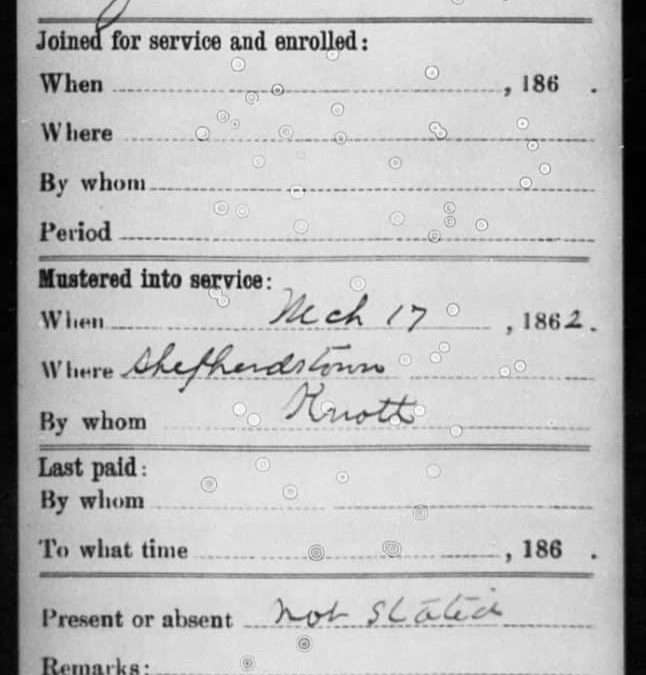 Joined for service and enrolled:
When , 186 .
Where
By whom
Period
Mustered into service:
When Mch 17 , 1862.
Where Shepherdstown
By whom Knott
Last paid:
By whom
To what time , 186 .
Present or absent not stated
Remarks: